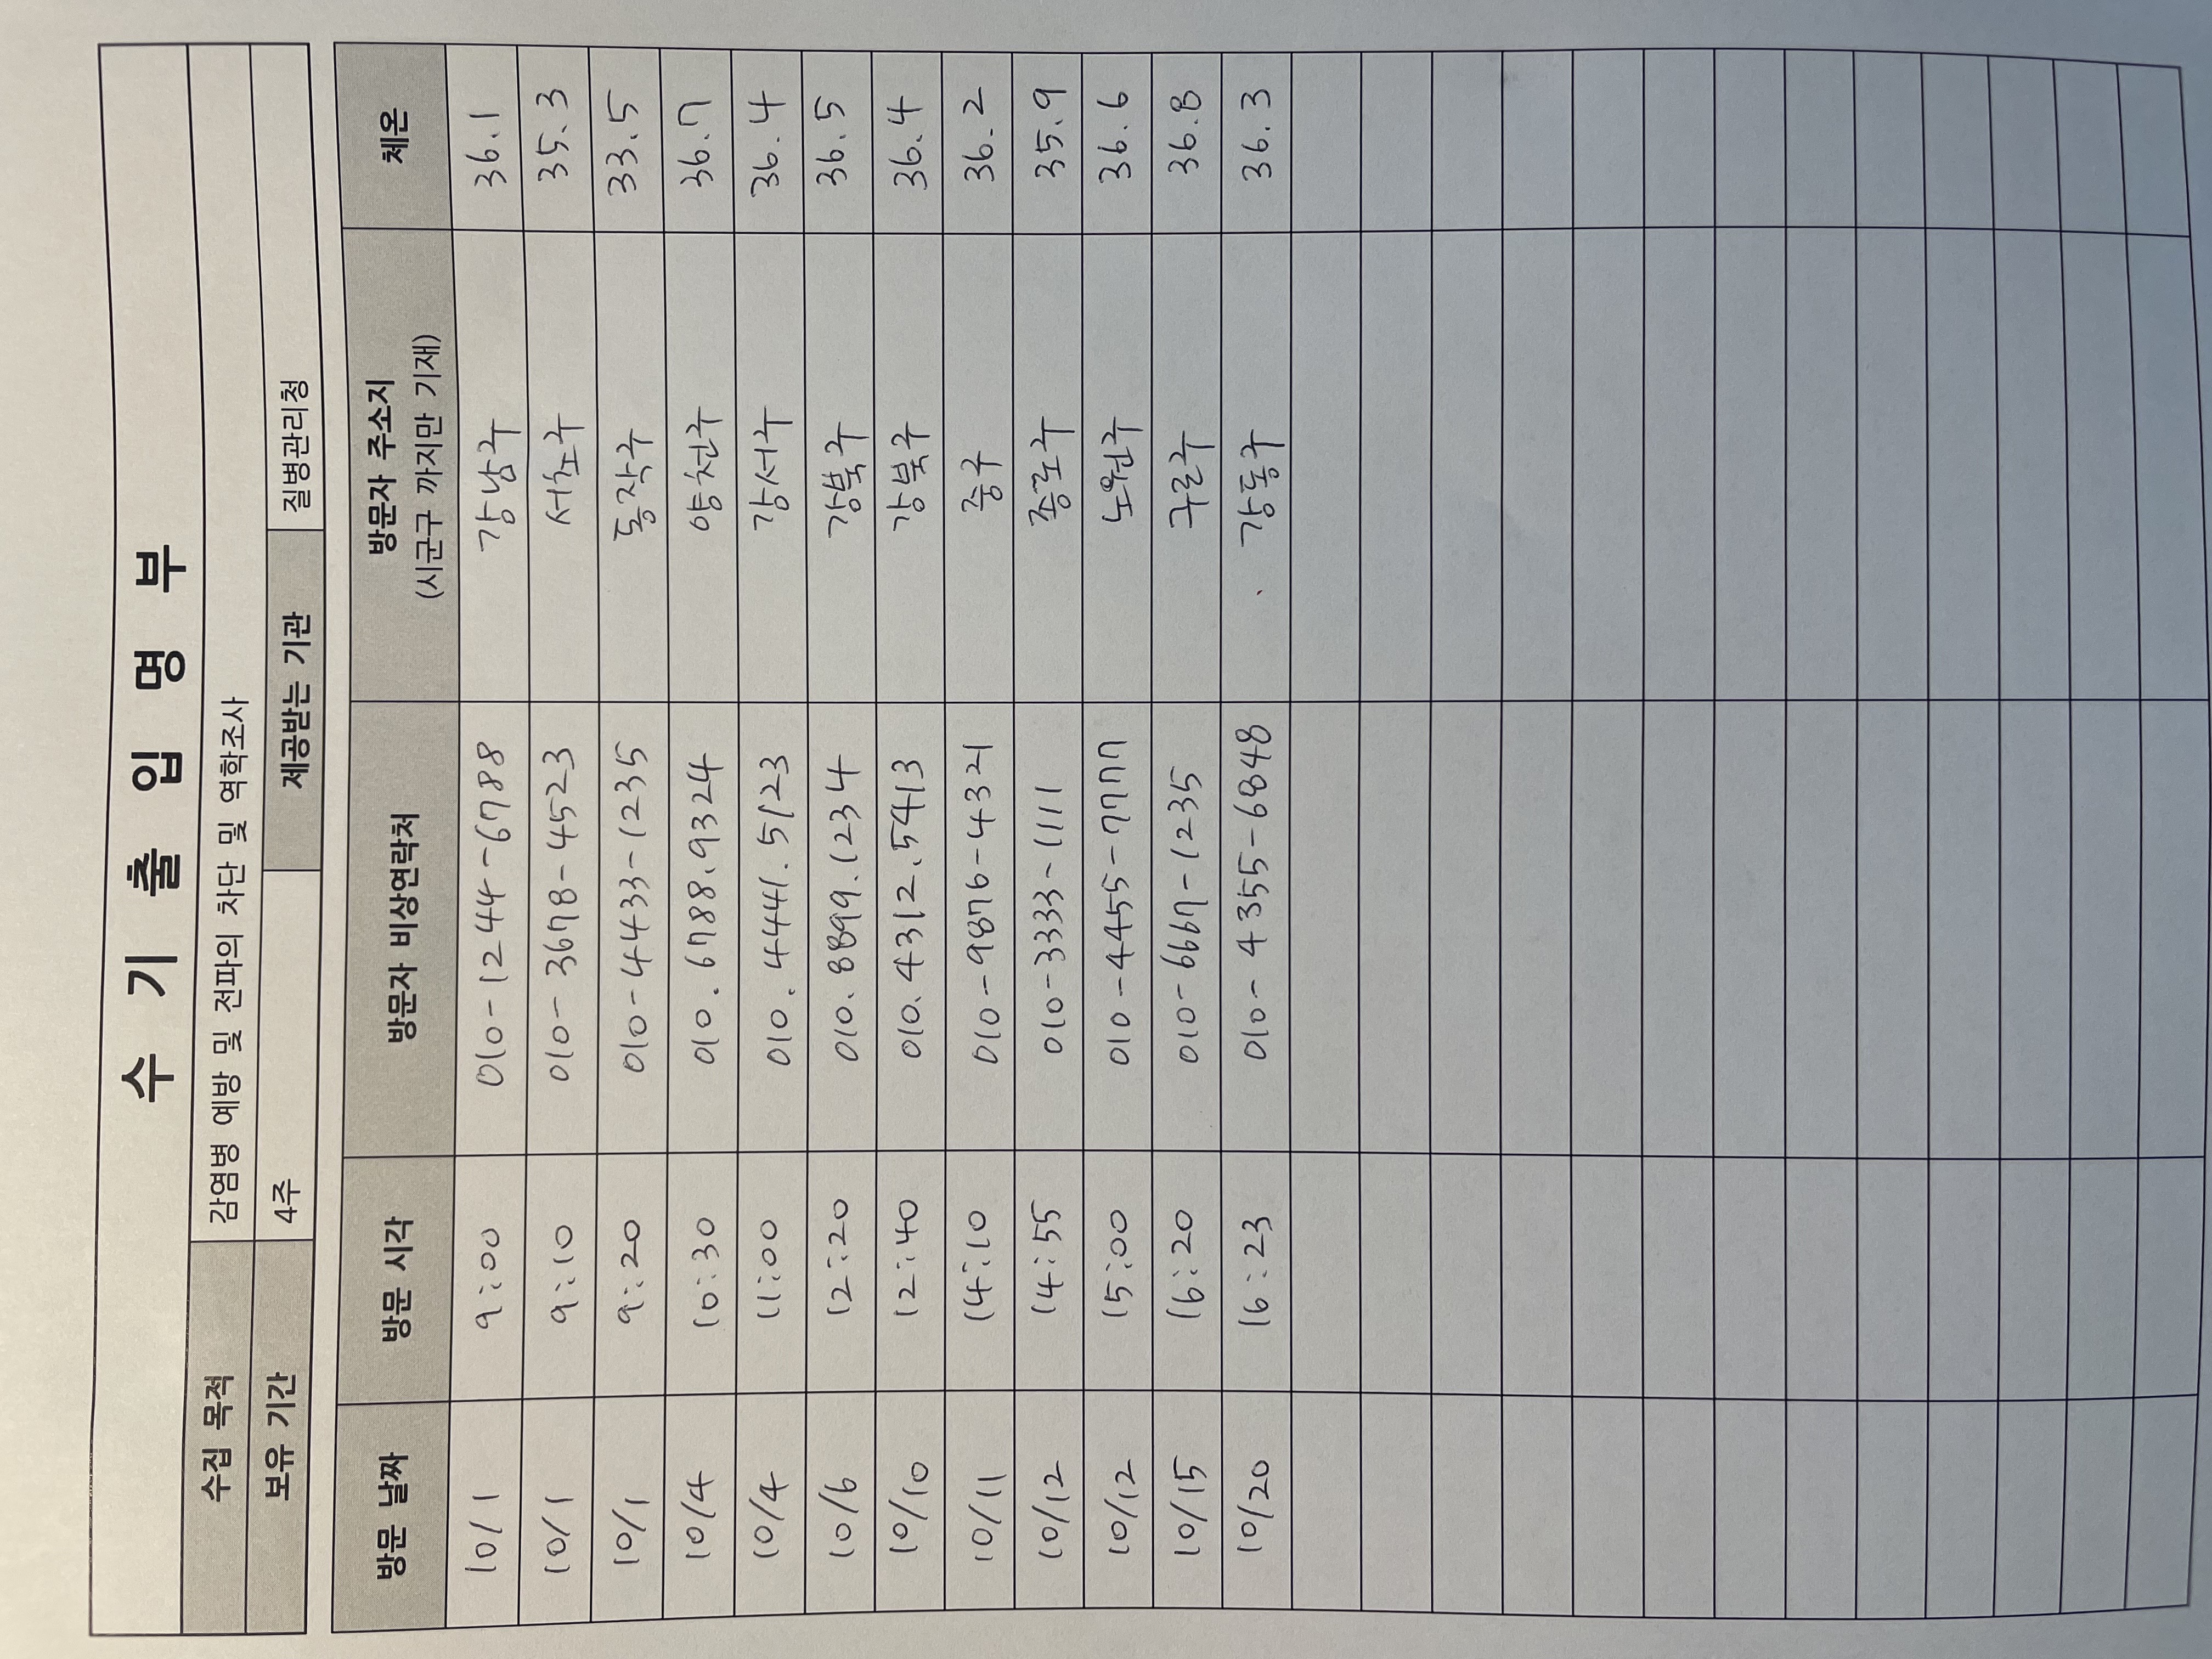 수 기 출 입 명 부
수집 목적 감염병 예방 및 전파의 차단 및 역학조사
보유 기간 4주 제공받는 기관 질병관리청
방문 날짜 방문 시각 방문자 비상연락처 방문자 주소지 체온
(시군구 까지만 기재)
10/1 9:00 010-1244-6788 강남구 36.1
10/1 9:10 010-3678-4523 서초구 35.3
10/1 9:20 010-4433-1235 동작구 33.5
10/4 10:30 010.6788.9324 양천구 36.7
10/4 11:00 010.4441.5123 강서구 36.4
10/6 12:20 010.8899.1234 강북구 36.5
10/10 12:40 010.4312.5413 강북구 36.4
10/11 14:10 010-9876-4321 중구 36.2
10/12 14:55 010-3333-1111 종로구 35.9
10/12 15:00 010-4455-7777 노원구 36.6
10/15 16:20 010-6667-1235 구로구 36.8
10/20 16:23 010-4355-6848 강동구 36.3